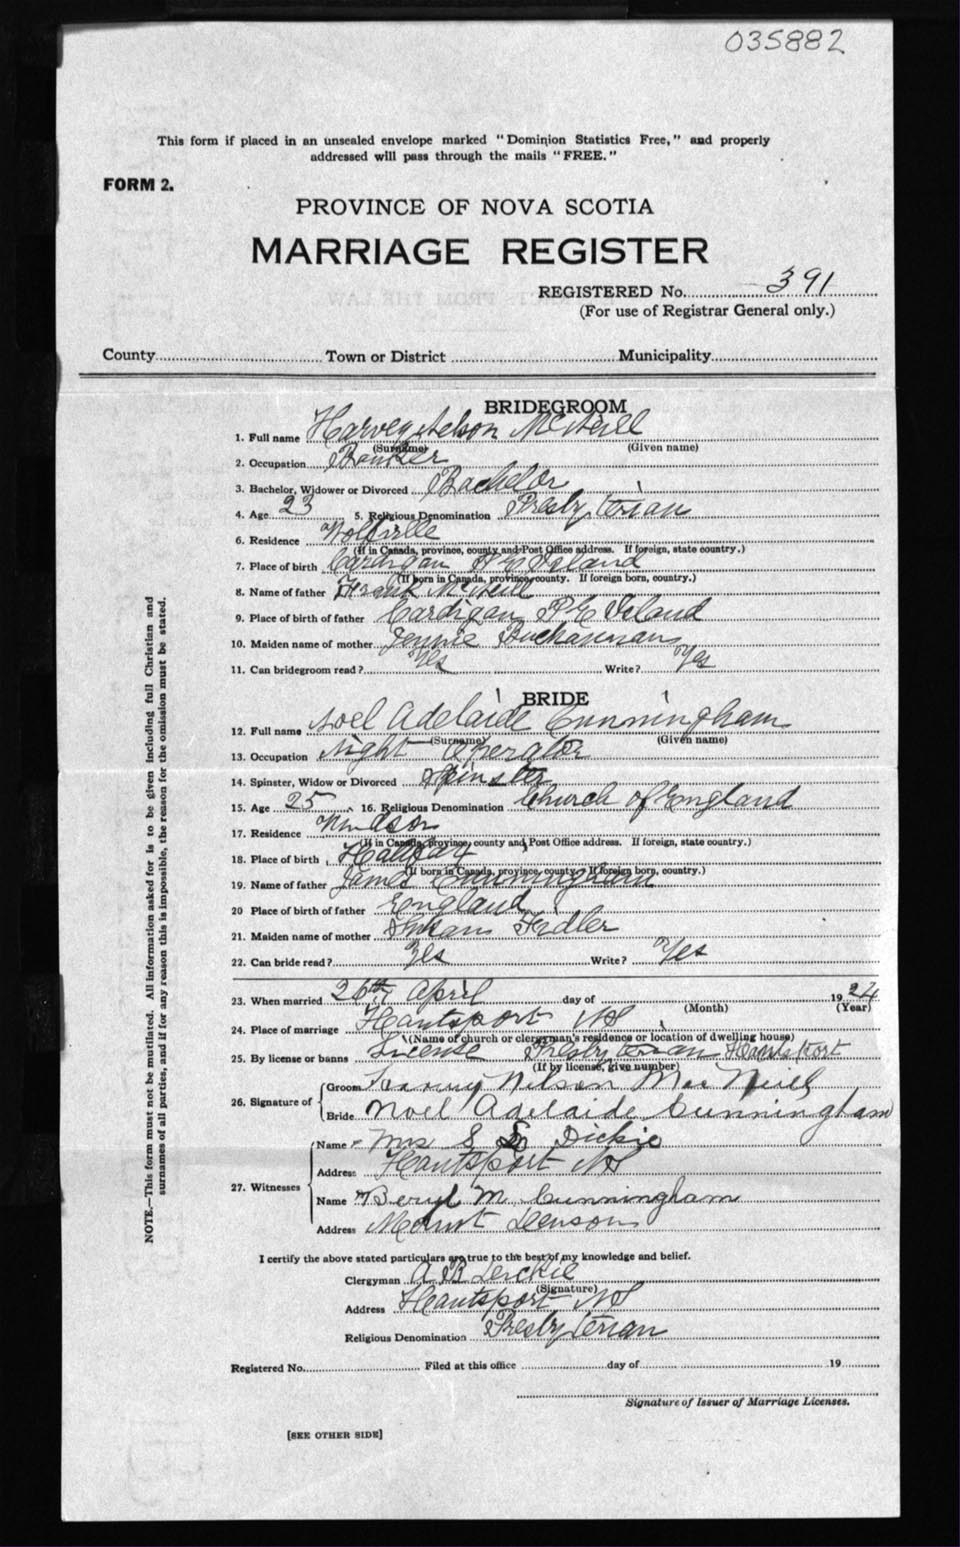 035882
This form if placed in an unsealed envelope marked "Dominion Statistics Free," and properly
addressed will pass through the mails "FREE."
FORM 2.
PROVINCE OF NOVA SCOTIA
MARRIAGE REGISTER
REGISTERED No. 391
(For use of Registrar General only.)
County Town or District Municipality
BRIDEGROOM
1. Full name Harvey Nelson McNeill
(Surname) (Given name)
2. Occupation Banker
3. Bachelor, Widower or Divorced Bachelor
4. Age 23 5. Religious Denomination Presbyterian
6. Residence Wolfville
(If in Canada, province, county and Post Office address. If foreign, state country.)
7. Place of birth Cardigan P E Island
(If born in Canada, province, county. If foreign born, country.)
8. Name of father Frank McNeill
9. Place of birth of father Cardigan P E Island
10. Maiden name of mother Jennie Buchanan
11. Can bridegroom read? Yes Write? Yes
BRIDE
12. Full name Noel Adelaide Cunningham
(Surname) (Given name)
13. Occupation Night Operator
14. Spinster, Widow or Divorced Spinster
15. Age 25 16. Religious Denomination Church of England
17. Residence Windsor
(If in Canada, province, county and Post Office address. If foreign, state country.)
18. Place of birth Halifax
(If born in Canada, province, county. If foreign born, country.)
19. Name of father James Cunningham
20 Place of birth of father England
21. Maiden name of mother Fidler
22. Can bride read? Yes Write? Yes
23. When married 26th April day of 1924
(Month) (Year)
24. Place of marriage Hantsport NS
(Name of church or clergyman's residence or location of dwelling house)
25. By license or banns License Presbyterian Hantsport
(If by license, give number)
26. Signature of Groom Harvey Nelson MacNeill
Bride Noel Adelaide Cunningham
27. Witnesses Name Mrs S Dickie
Address Hantsport NS
Name Beryl M. Cunningham
Address Mount Denson
I certify the above stated particulars are true to the best of my knowledge and belief.
Clergyman A B Dickie
(Signature)
Address Hantsport NS
Religious Denomination Presbyterian
Registered No. Filed at this office day of 19
Signature of Issuer of Marriage Licenses.
[SEE OTHER SIDE]
NOTE.—This form must not be mutilated. All information asked for is to be given including full Christian and
surnames of all parties, and if for any reason this is impossible, the reason for the omission must be stated.